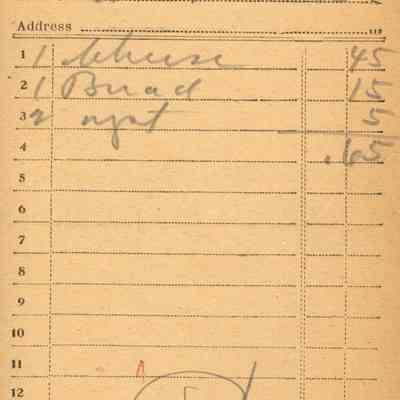 Address
1 1 Cheese 45
2 1 Bread 15
3 2 5
4 .65
5
6
7
8
9
10
11
12